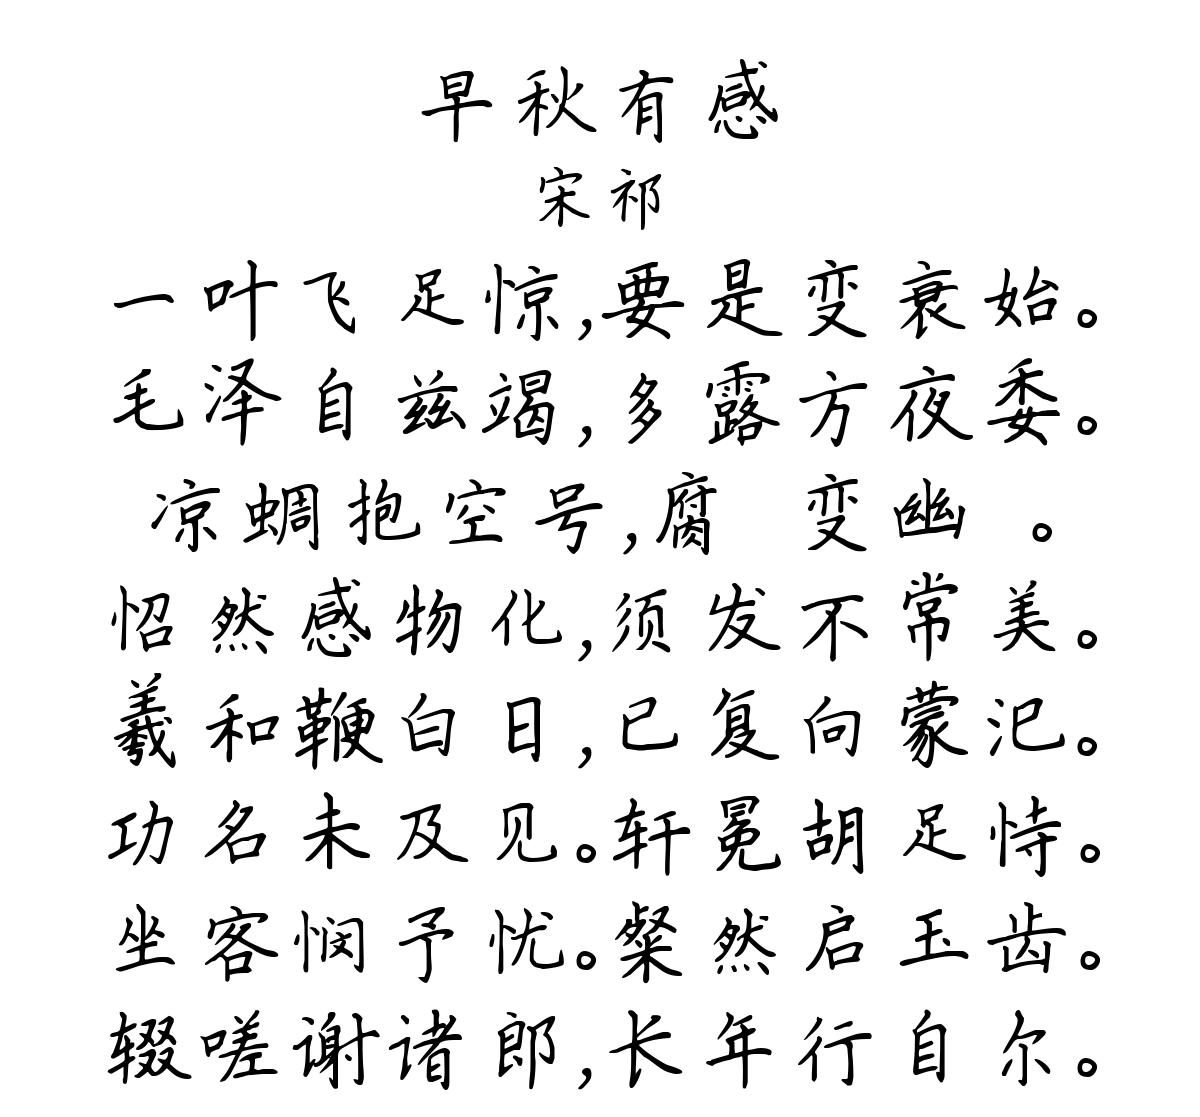 早秋有感
宋祁
一叶飞足惊,要是变衰始。
毛泽自兹竭,多露方夜委。
凉蜩抱空号,腐 变幽 。
怊然感物化,须发不常美。
羲和鞭白日,已复向蒙汜。
功名未及见。轩冕胡足恃。
坐客悯予忧。粲然启玉齿。
辍嗟谢诸郎,长年行自尔。